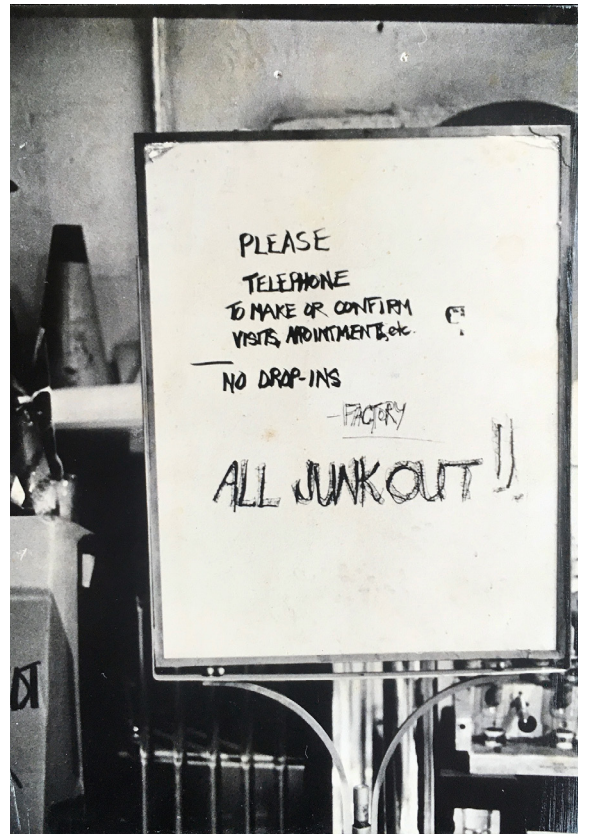 PLEASE
TELEPHONE
TO MAKE OR CONFIRM
VISITS, APOINTMENTS, etc.
NO DROP-INS
-FACTORY
ALL JUNK OUT!!